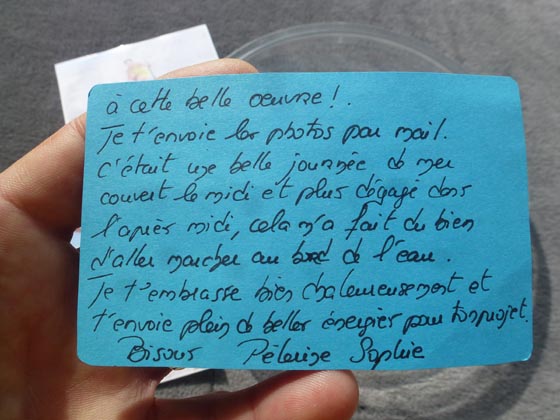 à cette belle oeuvre !
Je t'envoie les photos par mail.
c'était une belle journée de mer
couvert le midi et plus dégagé dans
l'après midi, cela m'a fait du bien
d'aller marcher au bord de l'eau.
Je t'embrasse bien chaleureusement et
t'envoie plein de belles énergies pour ton projet.
Bisous Sophie